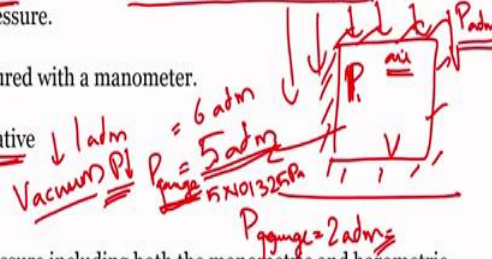 essure.
ured with a manometer.
ative ↓ 1 adm
Vacuum P↓
= 6 adm
Pgauge = 5 adm
= 5×101325 Pa
Padm
air
P
V
Pgauge = 2 adm
ssure including both the manometric and barometric